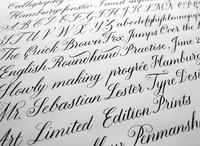 Calligraphy
A B C D E F G H I J K L M N O P Q R
S T U V W X Y Z abcdefghijklmnopqrst
The Quick Brown Fox Jumps Over the
English Roundhand Practise, June 2
Slowly making progree Hamburg
Mr. Sebastian Lester Type Desi
Art Limited Edition Prints
Your Penmanship